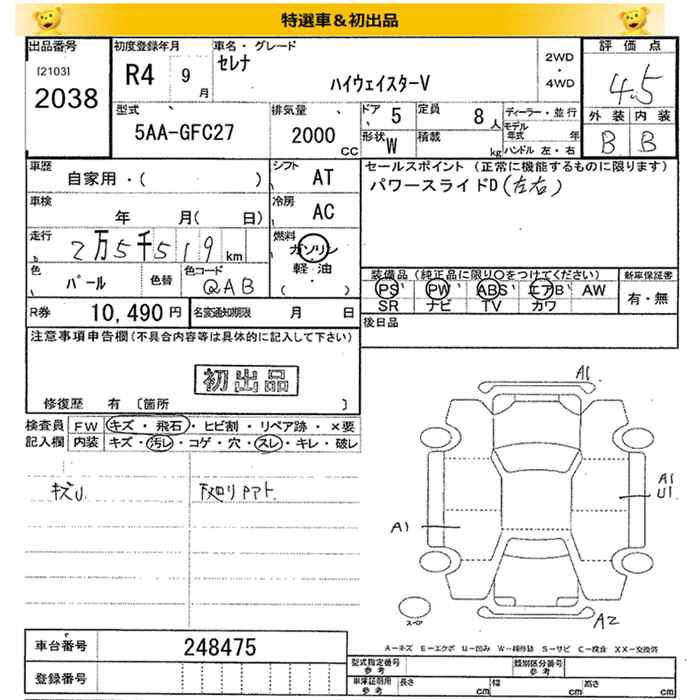 特選車＆初出品
出品番号
[2103]
2038
初度登録年月
R4 9月
車名・グレード
セレナ
ハイウェイスターV
2WD
・
4WD
評価点
4.5
外装 内装
B B
型式
5AA-GFC27
排気量
2000
CC
ドア
5
定員
8人
形状
W
積載
kg
ディーラー・並行
モデル年式 年
ハンドル 左・右
車歴
自家用・( )
シフト
AT
車検
年 月( 日)
冷房
AC
走行
2万5千519km
燃料
ガソリン
軽油
( ・ )
色
パール
色替
色コード
QAB
R券
10,490円
名変通知期限
月 日
セールスポイント（正常に機能するものに限ります）
パワースライドD(左右)
装備品（純正品に限り○をつけてください）
PS PW ABS エアB AW
SR ナビ TV カワ
新車保証書
有・無
後日品
注意事項申告欄(不具合内容等は具体的に記入して下さい)
初出品
修復歴 有 〔箇所 〕
検査員
記入欄
FW キズ・飛石・ヒビ割・リペア跡・×要
内装 キズ・汚レ・コゲ・穴・スレ・キレ・破レ
キズU.
下廻りPアト.
A1
A1
U1
A1
A2
スペア
車台番号
248475
登録番号
A－キズ E－エクボ U－凹み W－補修跡 S－サビ C－腐食 XX－交換済
型式指定番号
参考
類別区分番号
参考
車庫証明用
参考
長さ cm
幅 cm
高さ cm